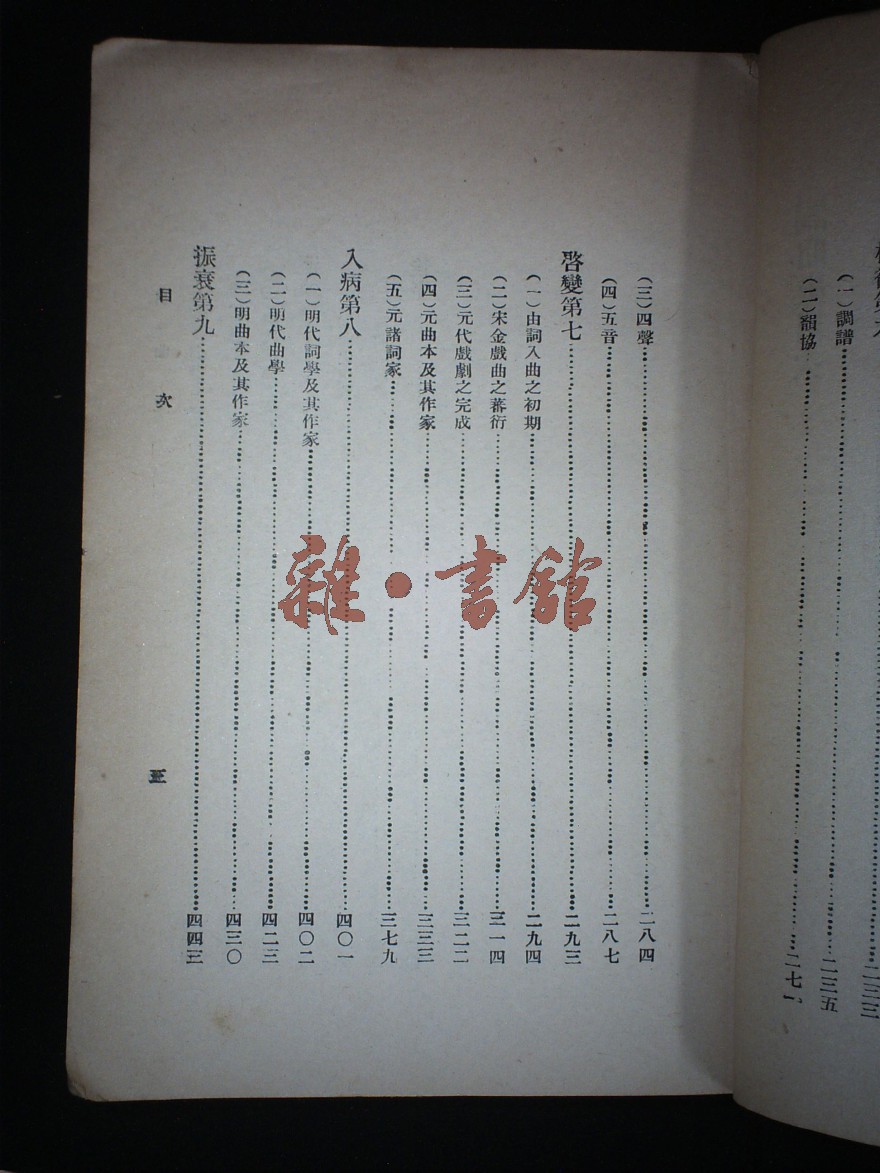 (一)調譜 二三五
(二)韻協 二七一
(三)四聲 二八四
(四)五音 二八七
啓變第七 二九三
(一)由詞入曲之初期 二九四
(二)宋金戲曲之蕃衍 三一四
(三)元代戲劇之完成 三二二
(四)元曲本及其作家 三三三
(五)元諸詞家 三七九
入病第八 四〇一
(一)明代詞學及其作家 四〇二
(二)明代曲學 四二三
(三)明曲本及其作家 四三〇
振衰第九 四四三
目次
三
雜·書館